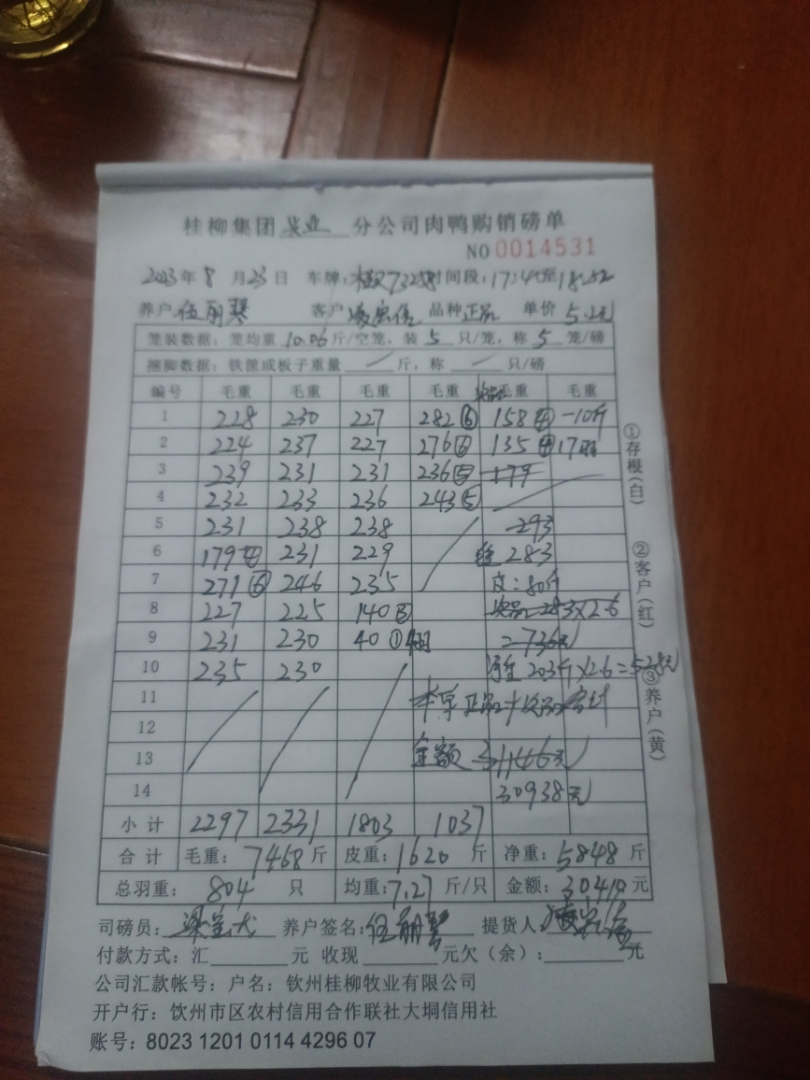 桂柳集团 兴业 分公司肉鸭购销磅单
NO 0014531
2023年 8 月 23 日 车牌: 时间段: 17:4 至 18:52
养户 伍丽琴 客户 品种 正品 单价 5.2元
笼装数据: 笼均重 10.06 斤/空笼, 装 5 只/笼, 称 5 笼/磅
捆脚数据: 铁筐或板子重量 / 斤, 称 / 只/磅
编号 毛重 毛重 毛重 毛重 次品 毛重 毛重
1 228 230 227 282⑥ 158④ -10斤
2 224 237 227 276⑥ 135④ 17羽
3 239 231 231 236⑤ 179
4 232 233 236 243⑤
5 231 238 238 293
6 179④ 231 229 283
7 271⑥ 246 235 皮:80斤
8 227 225 140③ 次品 283×2.6
9 231 230 40① 羽 =736元
10 235 230 净重 203斤×2.6=528元
11 本单正品+次品合计
12
13 金额 31146元
14 30938元
小计 2297 2331 1803 1037
合计 毛重: 7468 斤 皮重: 1620 斤 净重: 5848 斤
总羽重: 804 只 均重: 7.27 斤/只 金额: 30410 元
司磅员: 养户签名: 伍丽琴 提货人:
付款方式: 汇 元 收现 元欠(余): 元
公司汇款帐号: 户名: 钦州桂柳牧业有限公司
开户行: 钦州市区农村信用合作联社大垌信用社
账号: 8023 1201 0114 4296 07
①存根(白)
②客户(红)
③养户(黄)